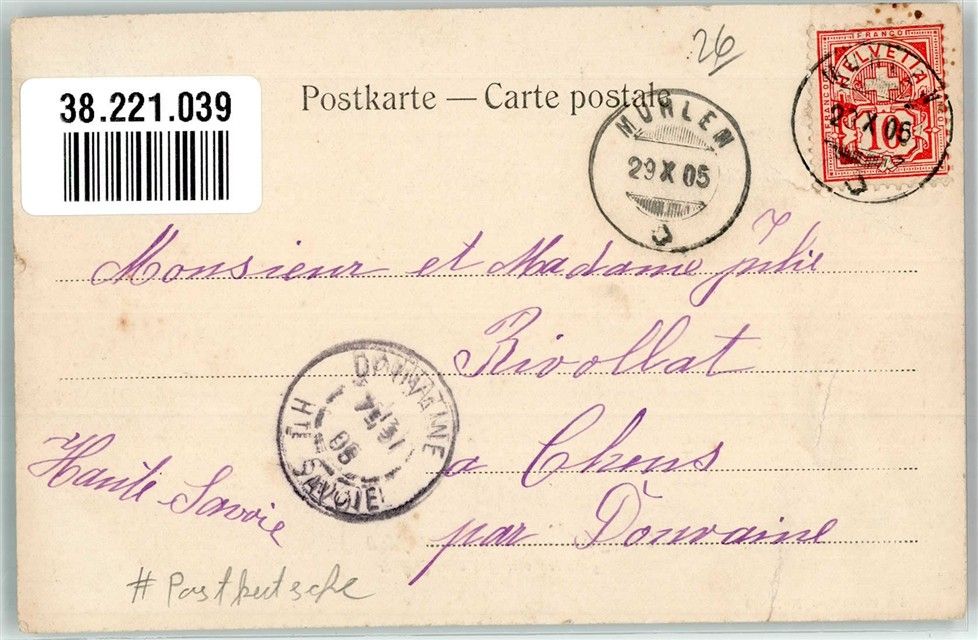 26
38.221.039
Postkarte — Carte postale
FRANCO
HELVETIA
10
MÜHLEN
29 X 05
Monsieur et Madame Julie
Rivollat
DOUVAINE
HTE SAVOIE
a Chens
Haute Savoie
par Douvaine
# Postkutsche